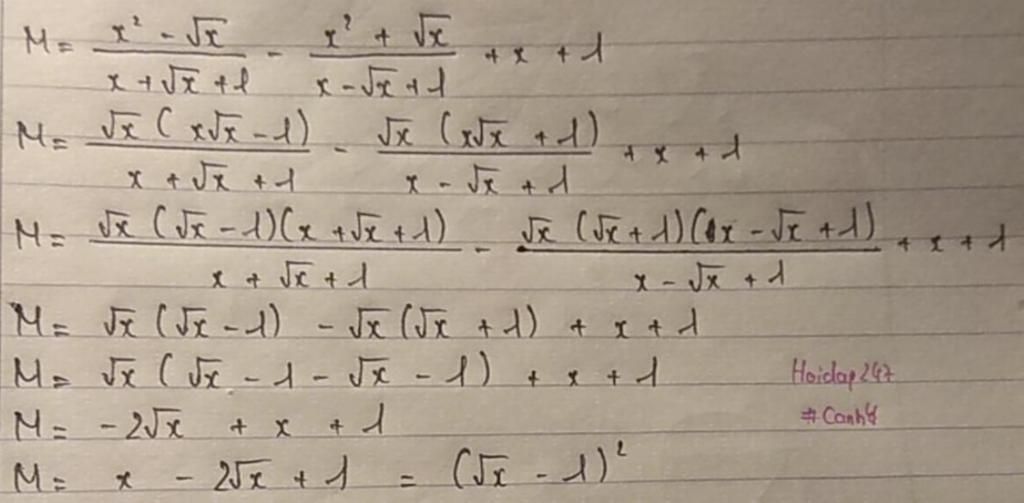 M = \frac{x² - √x}{x + √x + 1} - \frac{x² + √x}{x - √x + 1} + x + 1
M = \frac{√x (x√x - 1)}{x + √x + 1} - \frac{√x (x√x + 1)}{x - √x + 1} + x + 1
M = \frac{√x (√x - 1)(x + √x + 1)}{x + √x + 1} - \frac{√x (√x + 1)(x - √x + 1)}{x - √x + 1} + x + 1
M = √x (√x - 1) - √x (√x + 1) + x + 1
M = √x (√x - 1 - √x - 1) + x + 1
Hoidap247
M = -2√x + x + 1
M = x - 2√x + 1 = (√x - 1)²